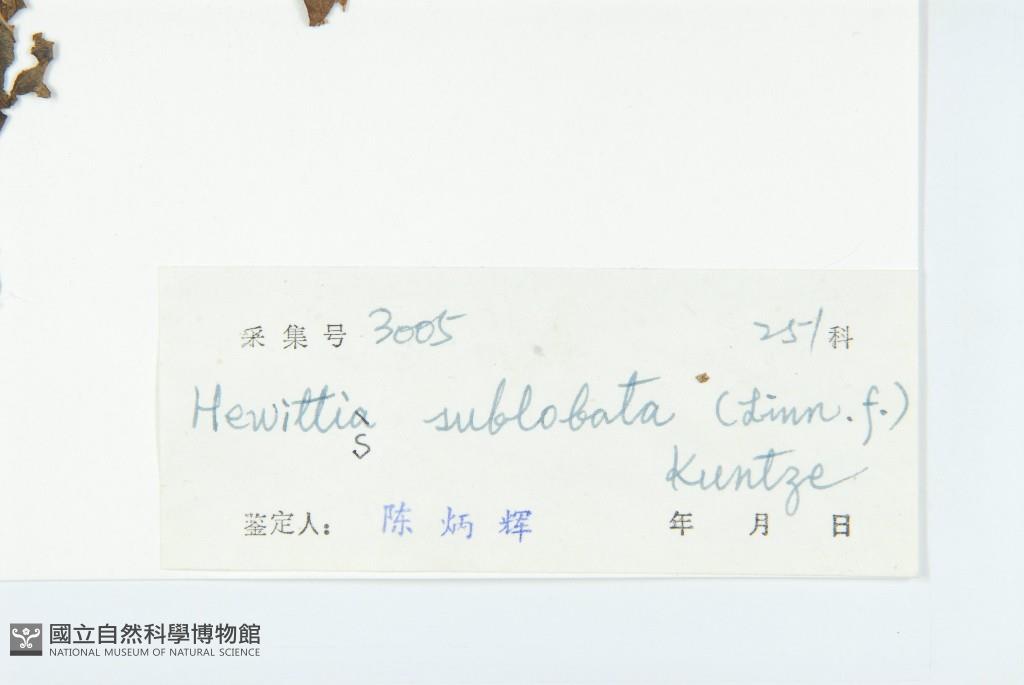 采集号 3005 251科
Hewittia sublobata (Linn. f.)
s
Kuntze
鉴定人: 陈炳辉 年 月 日
國立自然科學博物館
NATIONAL MUSEUM OF NATURAL SCIENCE